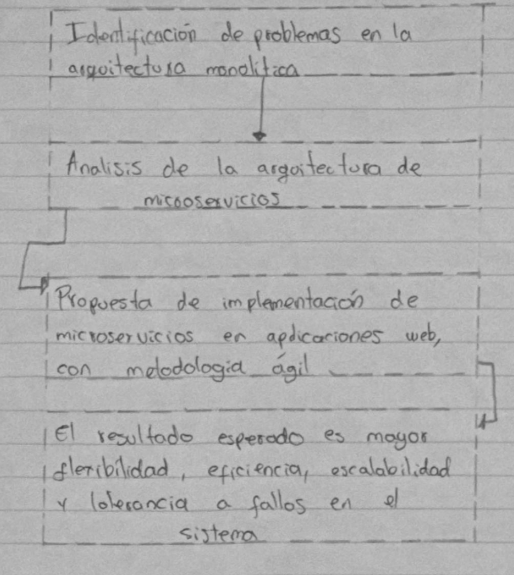 Identificación de problemas en la
arquitectura monolítica
Analisis de la arquitectura de
microservicios
Propuesta de implementación de
microservicios en aplicaciones web,
con metodologia ágil
El resultado esperado es mayor
flexibilidad, eficiencia, escalabilidad
y tolerancia a fallos en el
sistema